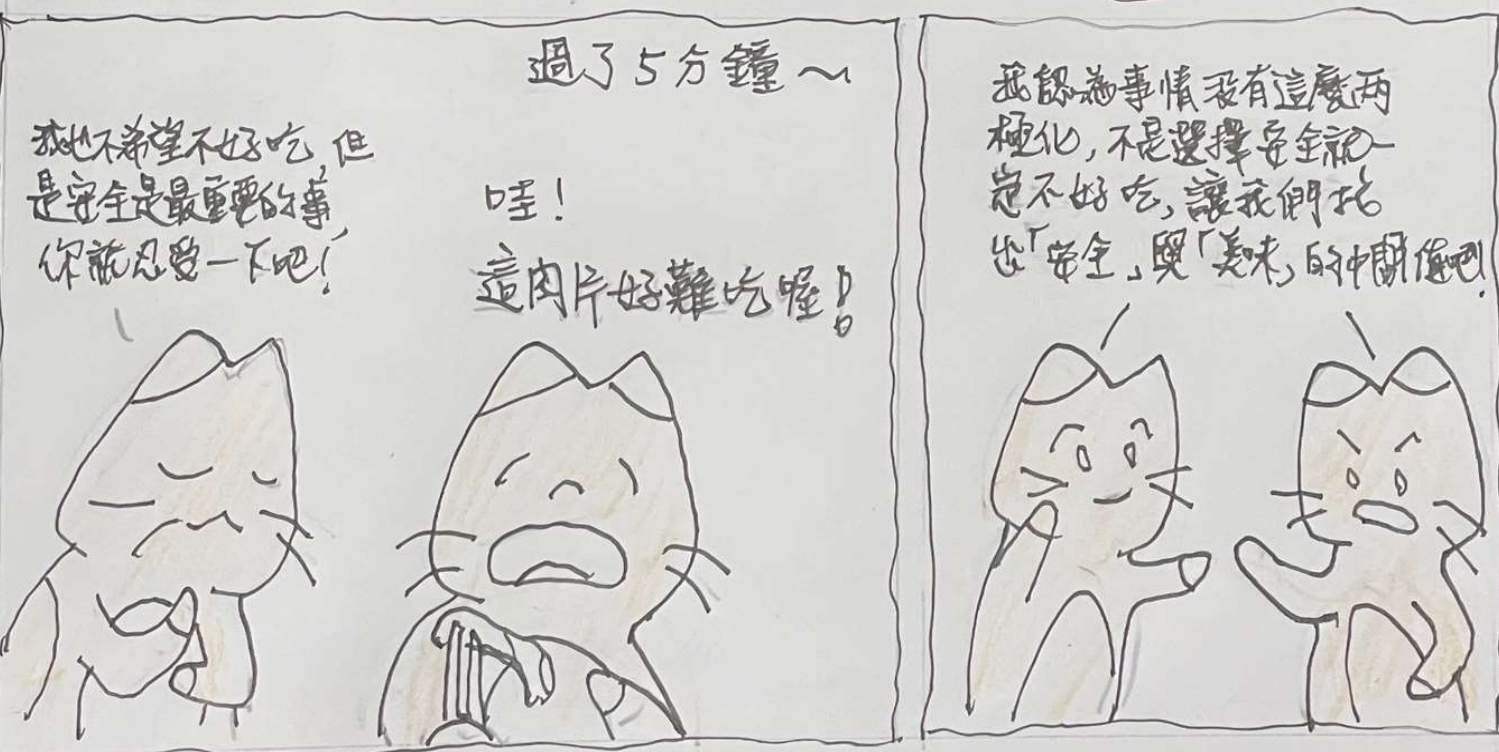 過了5分鐘~
我也不希望不好吃,但
是安全是最重要的事,
你就忍受一下吧!
哇!
這肉片好難吃喔!
我認為事情沒有這麼两
極化,不是選擇安全就一
定不好吃,讓我們找
出「安全」與「美味」的中間值吧!